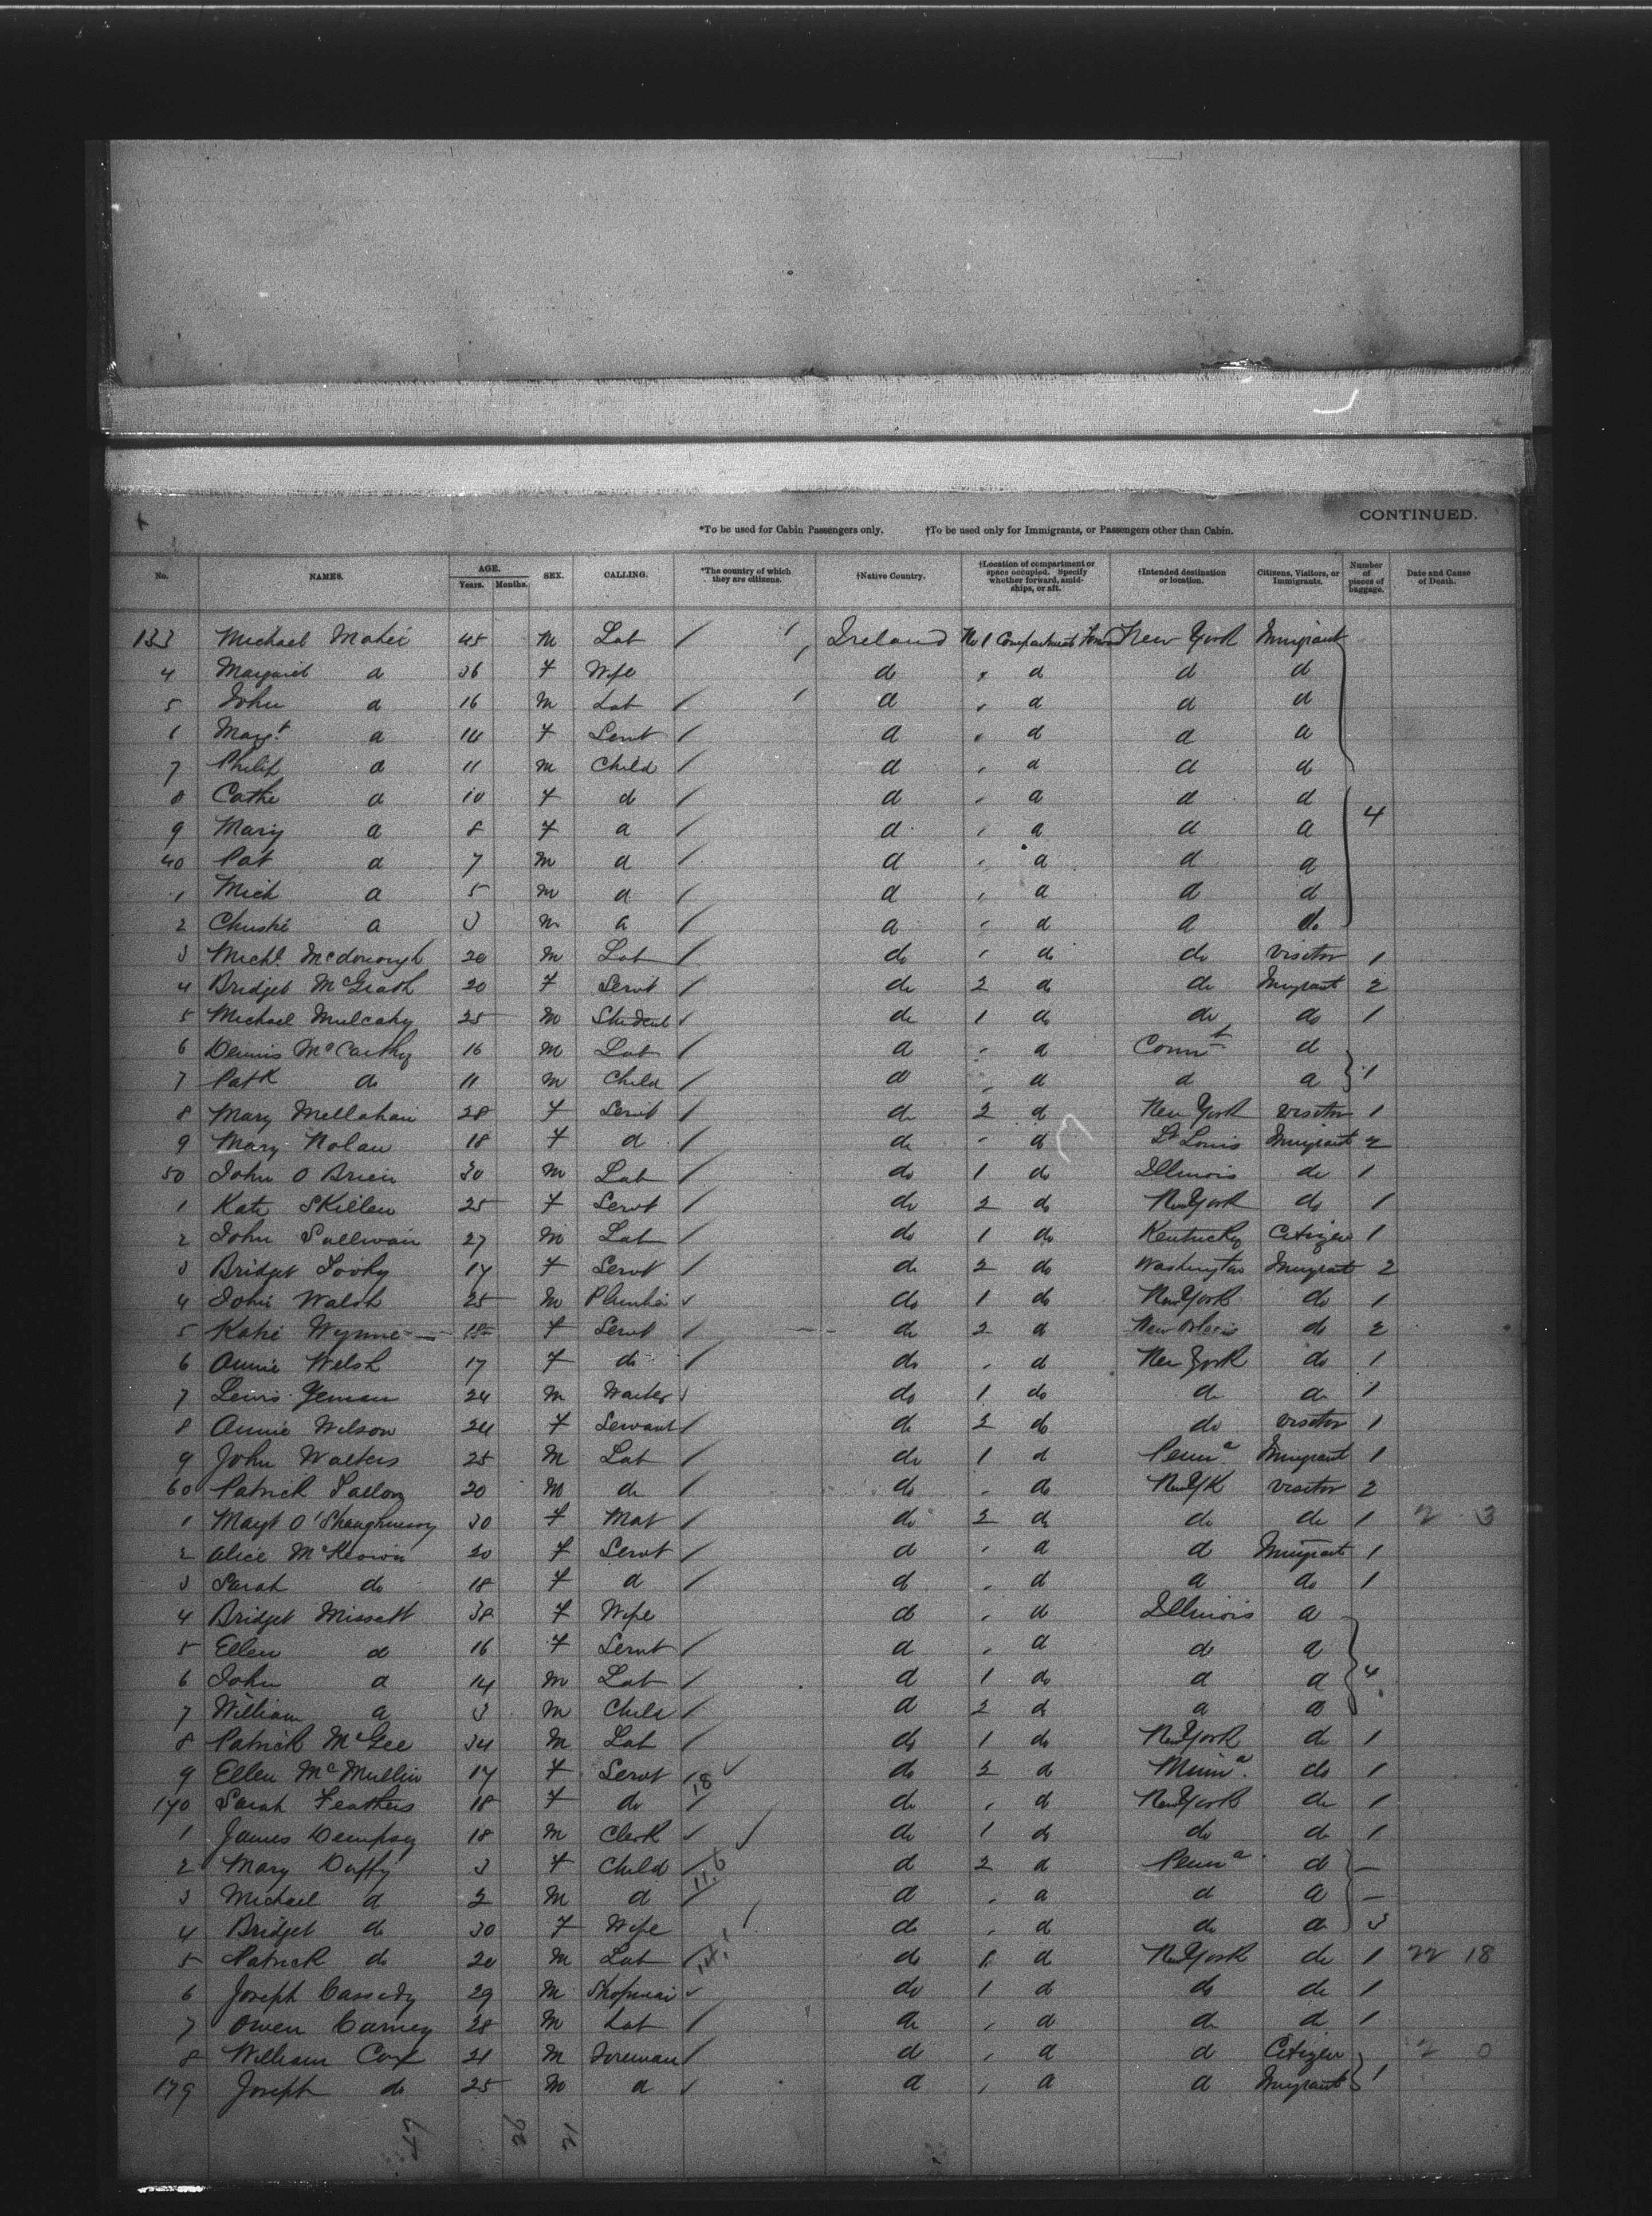 CONTINUED.
*To be used for Cabin Passengers only. †To be used only for Immigrants, or Passengers other than Cabin.
No. NAMES. AGE. Years. Months. SEX. CALLING. *The country of which they are citizens. †Native Country. †Location of compartment or space occupied. Specify whether forward, amidships, or aft. †Intended destination or location. Citizens, Visitors, or Immigrants. Number of pieces of baggage. Date and Cause of Death.
133 Michael Maher 45 M Lab Ireland No 1 Compartment New York Imigrant
4 Margaret d 36 F Wife d " d d d
5 John d 16 M Lab d " d d d
6 Margt d 14 F Servt d " d d d
7 Philip d 11 M Child d " d d d
8 Cathe d 10 F d d " d d d 4
9 Mary d 8 F d d " d d d
40 Pat d 7 M d d " d d d
1 Mich d 5 M d d " d d d
2 d 3 M d d " d d do
3 Michl McDonough 20 M Lab do " do do visitor 1
4 Bridget McGrath 20 F Servt do 2 do do Imigrant 2
5 Michael Mulcahy 25 M Student do 1 do do do 1
6 Dennis McCarthy 16 M Lab d " d Connt d
7 Patk do 11 M Child d " d d d 1
8 Mary Mellahan 28 F Servt do 2 d New York visitor 1
9 Mary Nolan 18 F d do " do St Louis Imigrant 2
50 John O Brien 30 M Lab do 1 do Illinois do 1
1 Kate Skillen 25 F Servt do 2 do New York do 1
2 John Sullivan 27 M Lab do 1 do Kentucky Citizen 1
3 Bridget 17 F Servt do 2 do Washington Imigrant 2
4 John Walsh 25 M Plumber do 1 do New York do 1
5 Katie Wynne 18 F Servt do 2 d New Orleans do 2
6 Annie Welsh 17 F do do " d New York do 1
7 Lewis Yeman 24 M Waiter do 1 do do do 1
8 Annie Wilson 24 F Servant do 2 do do visitor 1
9 John Walters 25 M Lab do 1 d Penna Imigrant 1
60 Patrick Fallon 20 M do do " do New Yk visitor 2
1 Magt O'Shaughnessy 30 F Mat do 2 do do do 1 2 3
2 Alice McKeown 20 F Servt d " d d Imigrant 1
3 Sarah do 18 F d d " d d do 1
4 Bridget Missett 38 F Wife d " d Illinois d
5 Ellen d 16 F Servt d " d d d
6 John d 14 M Lab d 1 do d d 4
7 William d 3 M Child d 2 d d d
8 Patrick McGee 34 M Lab do 1 do New York do 1
9 Ellen McMullin 17 F Servt do 2 d Minna do 1
170 Sarah Feathers 18 F do 18 do " d New York do 1
1 James Dempsey 18 M Clerk do 1 do do do 1
2 Mary Duffy 3 F Child 11.6 d 2 d Penna d —
3 Michael d 2 M d d " d d d —
4 Bridget do 30 F Wife do " d do do 3
5 Patrick do 20 M Lab do 1 d New York do 1 22 18
6 Joseph Cassedy 29 M Shopman do 1 d do do 1
7 Owen Carney 28 M Lab do " d do do 1
8 William Cox 21 M Foreman d " d d Citizen 2 0
179 Joseph do 25 M d d " d d Imigrant 1